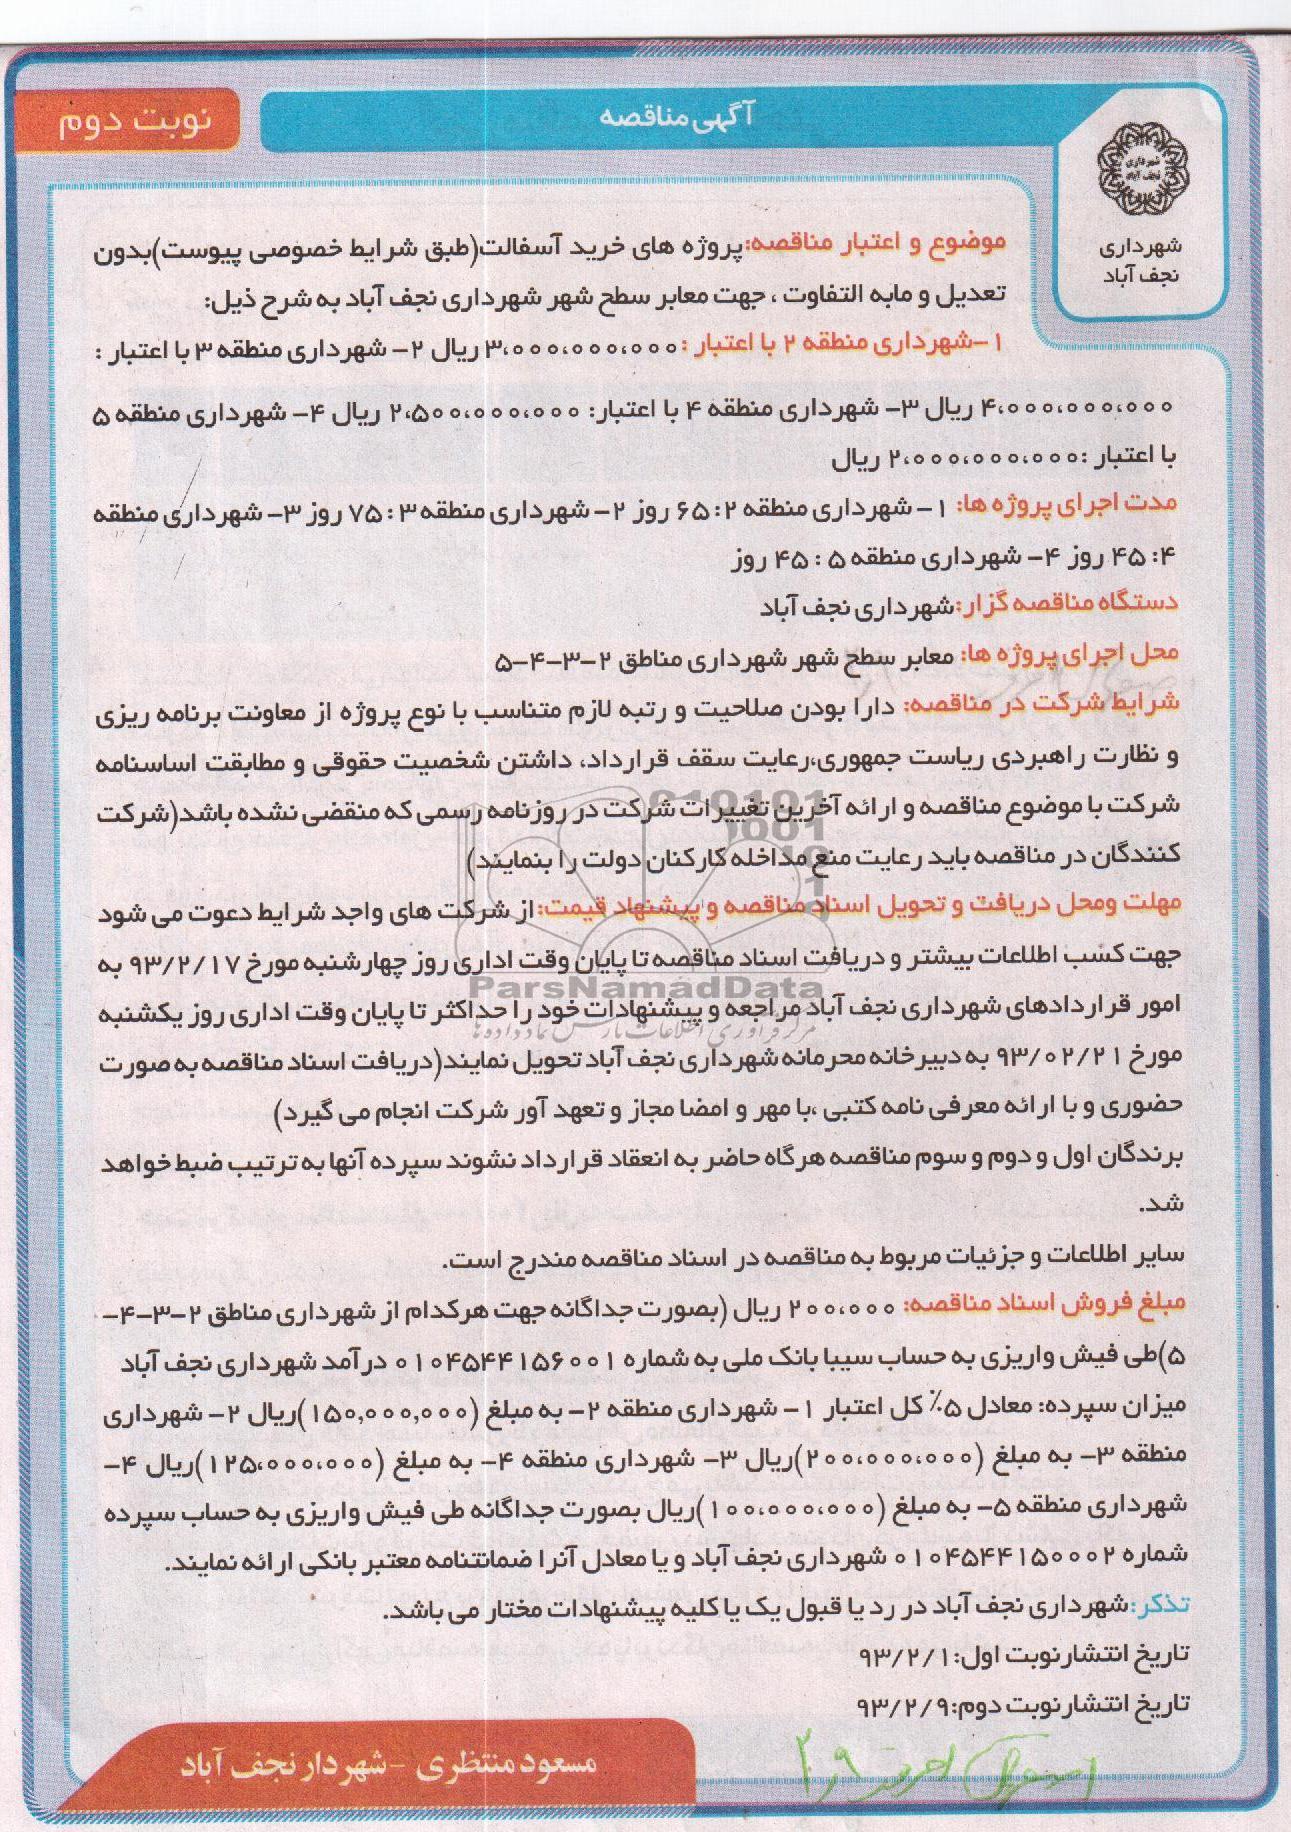 آگهی مناقصه
نوبت دوم
شهرداری
نجف آباد
شهرداری
نجف آباد
موضوع و اعتبار مناقصه:پروژه های خرید آسفالت(طبق شرایط خصوصی پیوست)بدون
تعدیل و مابه التفاوت ، جهت معابر سطح شهر شهرداری نجف آباد به شرح ذیل:
۱-شهرداری منطقه ۲ با اعتبار :۳،۰۰۰،۰۰۰،۰۰۰ ریال ۲- شهرداری منطقه ۳ با اعتبار :
۴،۰۰۰،۰۰۰،۰۰۰ ریال ۳- شهرداری منطقه ۴ با اعتبار: ۲،۵۰۰،۰۰۰،۰۰۰ ریال ۴- شهرداری منطقه ۵
با اعتبار :۲،۰۰۰،۰۰۰،۰۰۰ ریال
مدت اجرای پروژه ها: ۱- شهرداری منطقه ۲: ۶۵ روز ۲- شهرداری منطقه ۳: ۷۵ روز ۳- شهرداری منطقه
۴: ۴۵ روز ۴- شهرداری منطقه ۵ : ۴۵ روز
دستگاه مناقصه گزار:شهرداری نجف آباد
محل اجرای پروژه ها: معابر سطح شهر شهرداری مناطق ۲-۳-۴-۵
شرایط شرکت در مناقصه: دارا بودن صلاحیت و رتبه لازم متناسب با نوع پروژه از معاونت برنامه ریزی
و نظارت راهبردی ریاست جمهوری،رعایت سقف قرارداد، داشتن شخصیت حقوقی و مطابقت اساسنامه
شرکت با موضوع مناقصه و ارائه آخرین تغییرات شرکت در روزنامه رسمی که منقضی نشده باشد(شرکت
کنندگان در مناقصه باید رعایت منع مداخله کارکنان دولت را بنمایند)
مهلت ومحل دریافت و تحویل اسناد مناقصه و پیشنهاد قیمت:از شرکت های واجد شرایط دعوت می شود
جهت کسب اطلاعات بیشتر و دریافت اسناد مناقصه تا پایان وقت اداری روز چهارشنبه مورخ ۹۳/۲/۱۷ به
امور قراردادهای شهرداری نجف آباد مراجعه و پیشنهادات خود را حداکثر تا پایان وقت اداری روز یکشنبه
مورخ ۹۳/۰۲/۲۱ به دبیرخانه محرمانه شهرداری نجف آباد تحویل نمایند(دریافت اسناد مناقصه به صورت
حضوری و با ارائه معرفی نامه کتبی ،با مهر و امضا مجاز و تعهد آور شرکت انجام می گیرد)
برندگان اول و دوم و سوم مناقصه هرگاه حاضر به انعقاد قرارداد نشوند سپرده آنها به ترتیب ضبط خواهد
شد.
سایر اطلاعات و جزئیات مربوط به مناقصه در اسناد مناقصه مندرج است.
مبلغ فروش اسناد مناقصه: ۲۰۰،۰۰۰ ریال (بصورت جداگانه جهت هرکدام از شهرداری مناطق ۲-۳-۴-
۵)طی فیش واریزی به حساب سیبا بانک ملی به شماره ۰۱۰۴۵۴۴۱۵۶۰۰۱ درآمد شهرداری نجف آباد
میزان سپرده: معادل ۵٪ کل اعتبار ۱- شهرداری منطقه ۲- به مبلغ (۱۵۰,۰۰۰,۰۰۰)ریال ۲- شهرداری
منطقه ۳- به مبلغ (۲۰۰،۰۰۰،۰۰۰)ریال ۳- شهرداری منطقه ۴- به مبلغ (۱۲۵،۰۰۰،۰۰۰)ریال ۴-
شهرداری منطقه ۵- به مبلغ (۱۰۰،۰۰۰،۰۰۰)ریال بصورت جداگانه طی فیش واریزی به حساب سپرده
شماره ۰۱۰۴۵۴۴۱۵۰۰۰۲ شهرداری نجف آباد و یا معادل آنرا ضمانتنامه معتبر بانکی ارائه نمایند.
تذکر:شهرداری نجف آباد در رد یا قبول یک یا کلیه پیشنهادات مختار می باشد.
تاریخ انتشارنوبت اول:۹۳/۲/۱
تاریخ انتشارنوبت دوم:۹۳/۲/۹
مسعود منتظری - شهردار نجف آباد
ParsNamadData